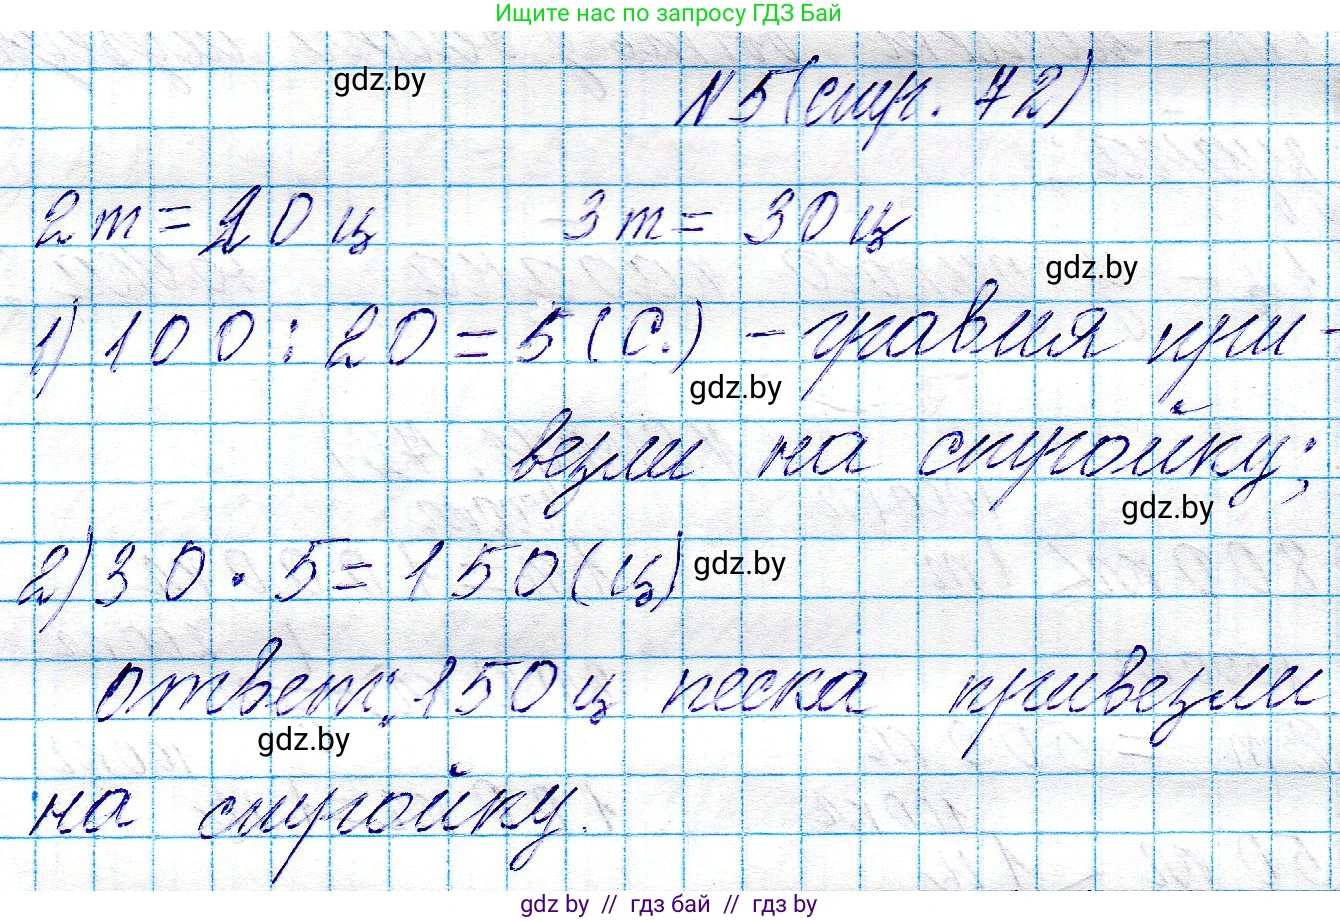 Ищите нас по запросу ГДЗ Бай
gdz.by
N 5 (стр. 72)
2 т = 20 ц 3 т = 30 ц
gdz.by
1) 100 : 20 = 5 (С.) - гравия при-
gdz.by
везли на стройку;
gdz.by
2) 30 · 5 = 150 (ц)
gdz.by
ответ: 150 ц песка привезли
gdz.by
на стройку.
gdz.by // гдз бай // гдз by